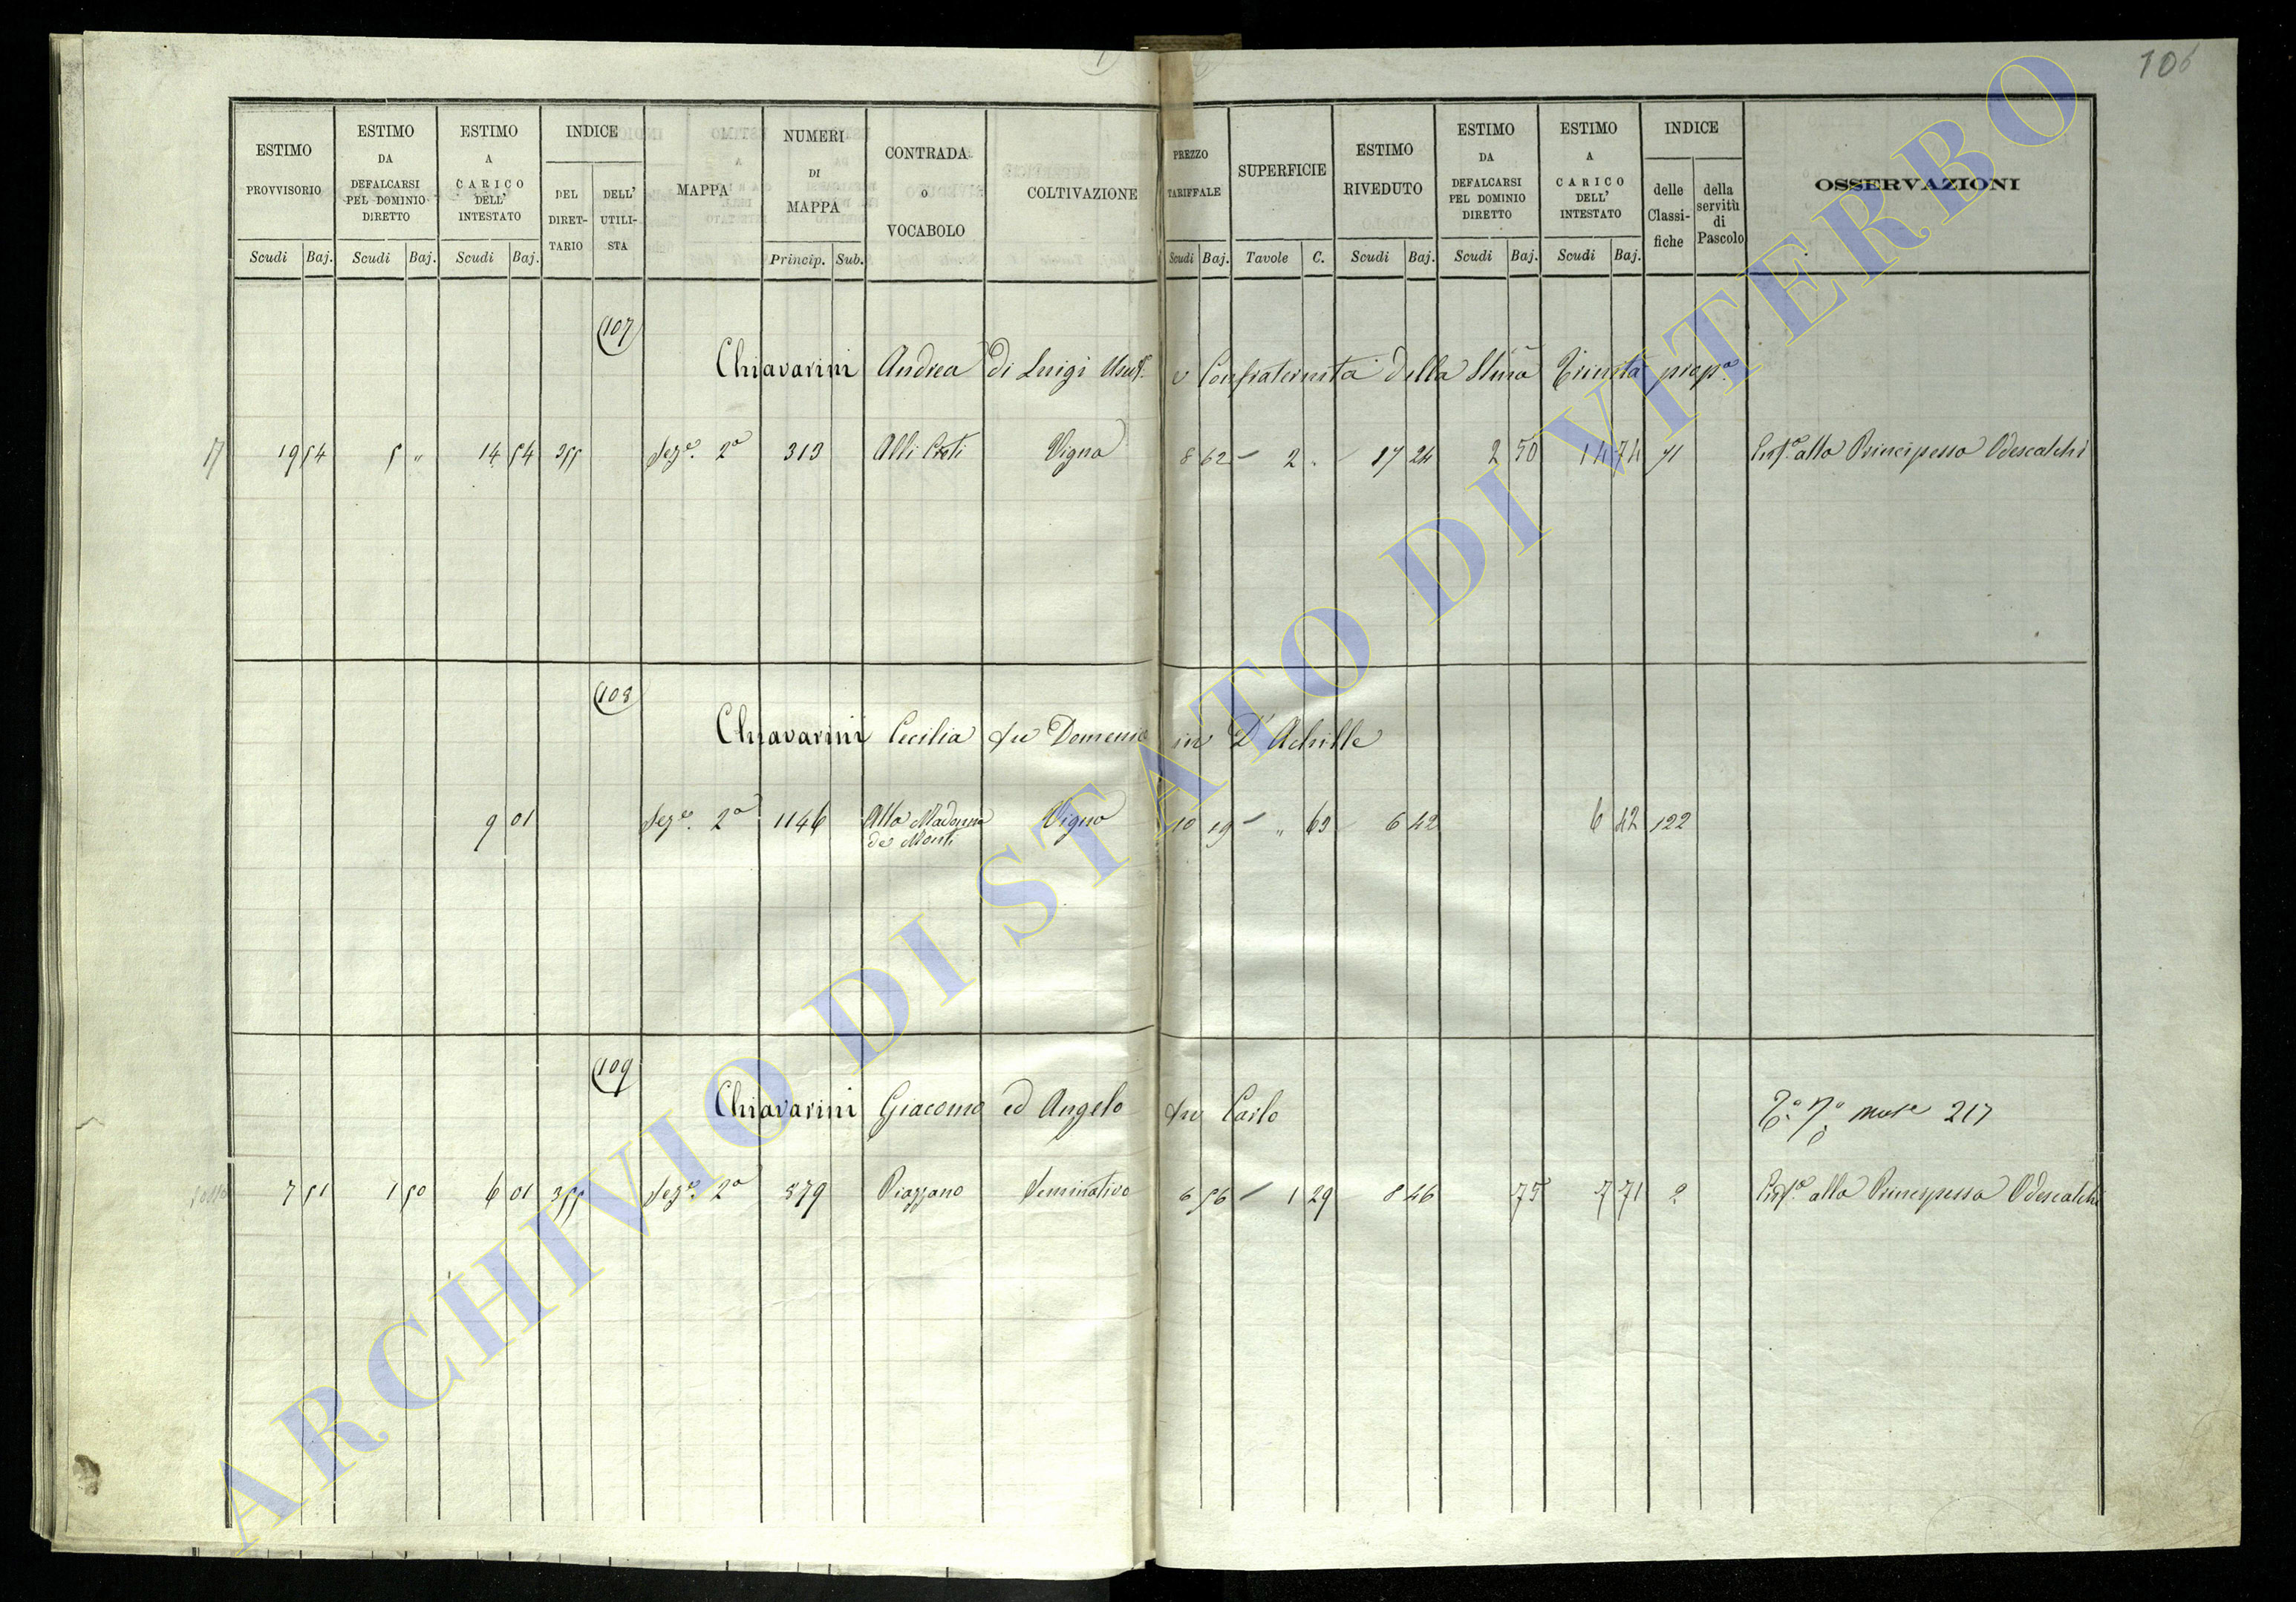 106
ESTIMO PROVVISORIO Scudi Baj.
ESTIMO DA DEFALCARSI PEL DOMINIO DIRETTO Scudi Baj.
ESTIMO A CARICO DELL' INTESTATO Scudi Baj.
INDICE DEL DIRET-TARIO DELL' UTILI-STA
MAPPA
NUMERI DI MAPPA Princip. Sub.
CONTRADA O VOCABOLO
COLTIVAZIONE
PREZZO TARIFFALE Scudi Baj.
SUPERFICIE Tavole C.
ESTIMO RIVEDUTO Scudi Baj.
ESTIMO DA DEFALCARSI PEL DOMINIO DIRETTO Scudi Baj.
ESTIMO A CARICO DELL' INTESTATO Scudi Baj.
INDICE delle Classi-fiche della servitù di Pascolo
OSSERVAZIONI
107
Chiavarini Andrea di Luigi Usuf. e Confraternita della Ssma Trinità prop.a
17 19 54 5 " 14 54 355 Sez.e 2a 313 Vigna 8 62 2 " 17 24 2 50 14 74 71 alla Principessa Odescalchi
108
Chiavarini Cecilia fu Domenico in D'Achille
9 01 Sez.e 2a 1146 Alla Madonna de Monti Vigna 10 19 " 63 6 42 6 42 122
109
Chiavarini Giacomo ed Angelo fu Carlo 217
7 51 1 50 6 01 355 Sez.e 2a 379 Piazzano Seminativo 6 56 1 29 8 46 75 7 71 2 alla Principessa Odescalchi
ARCHIVIO DI STATO DI VITERBO